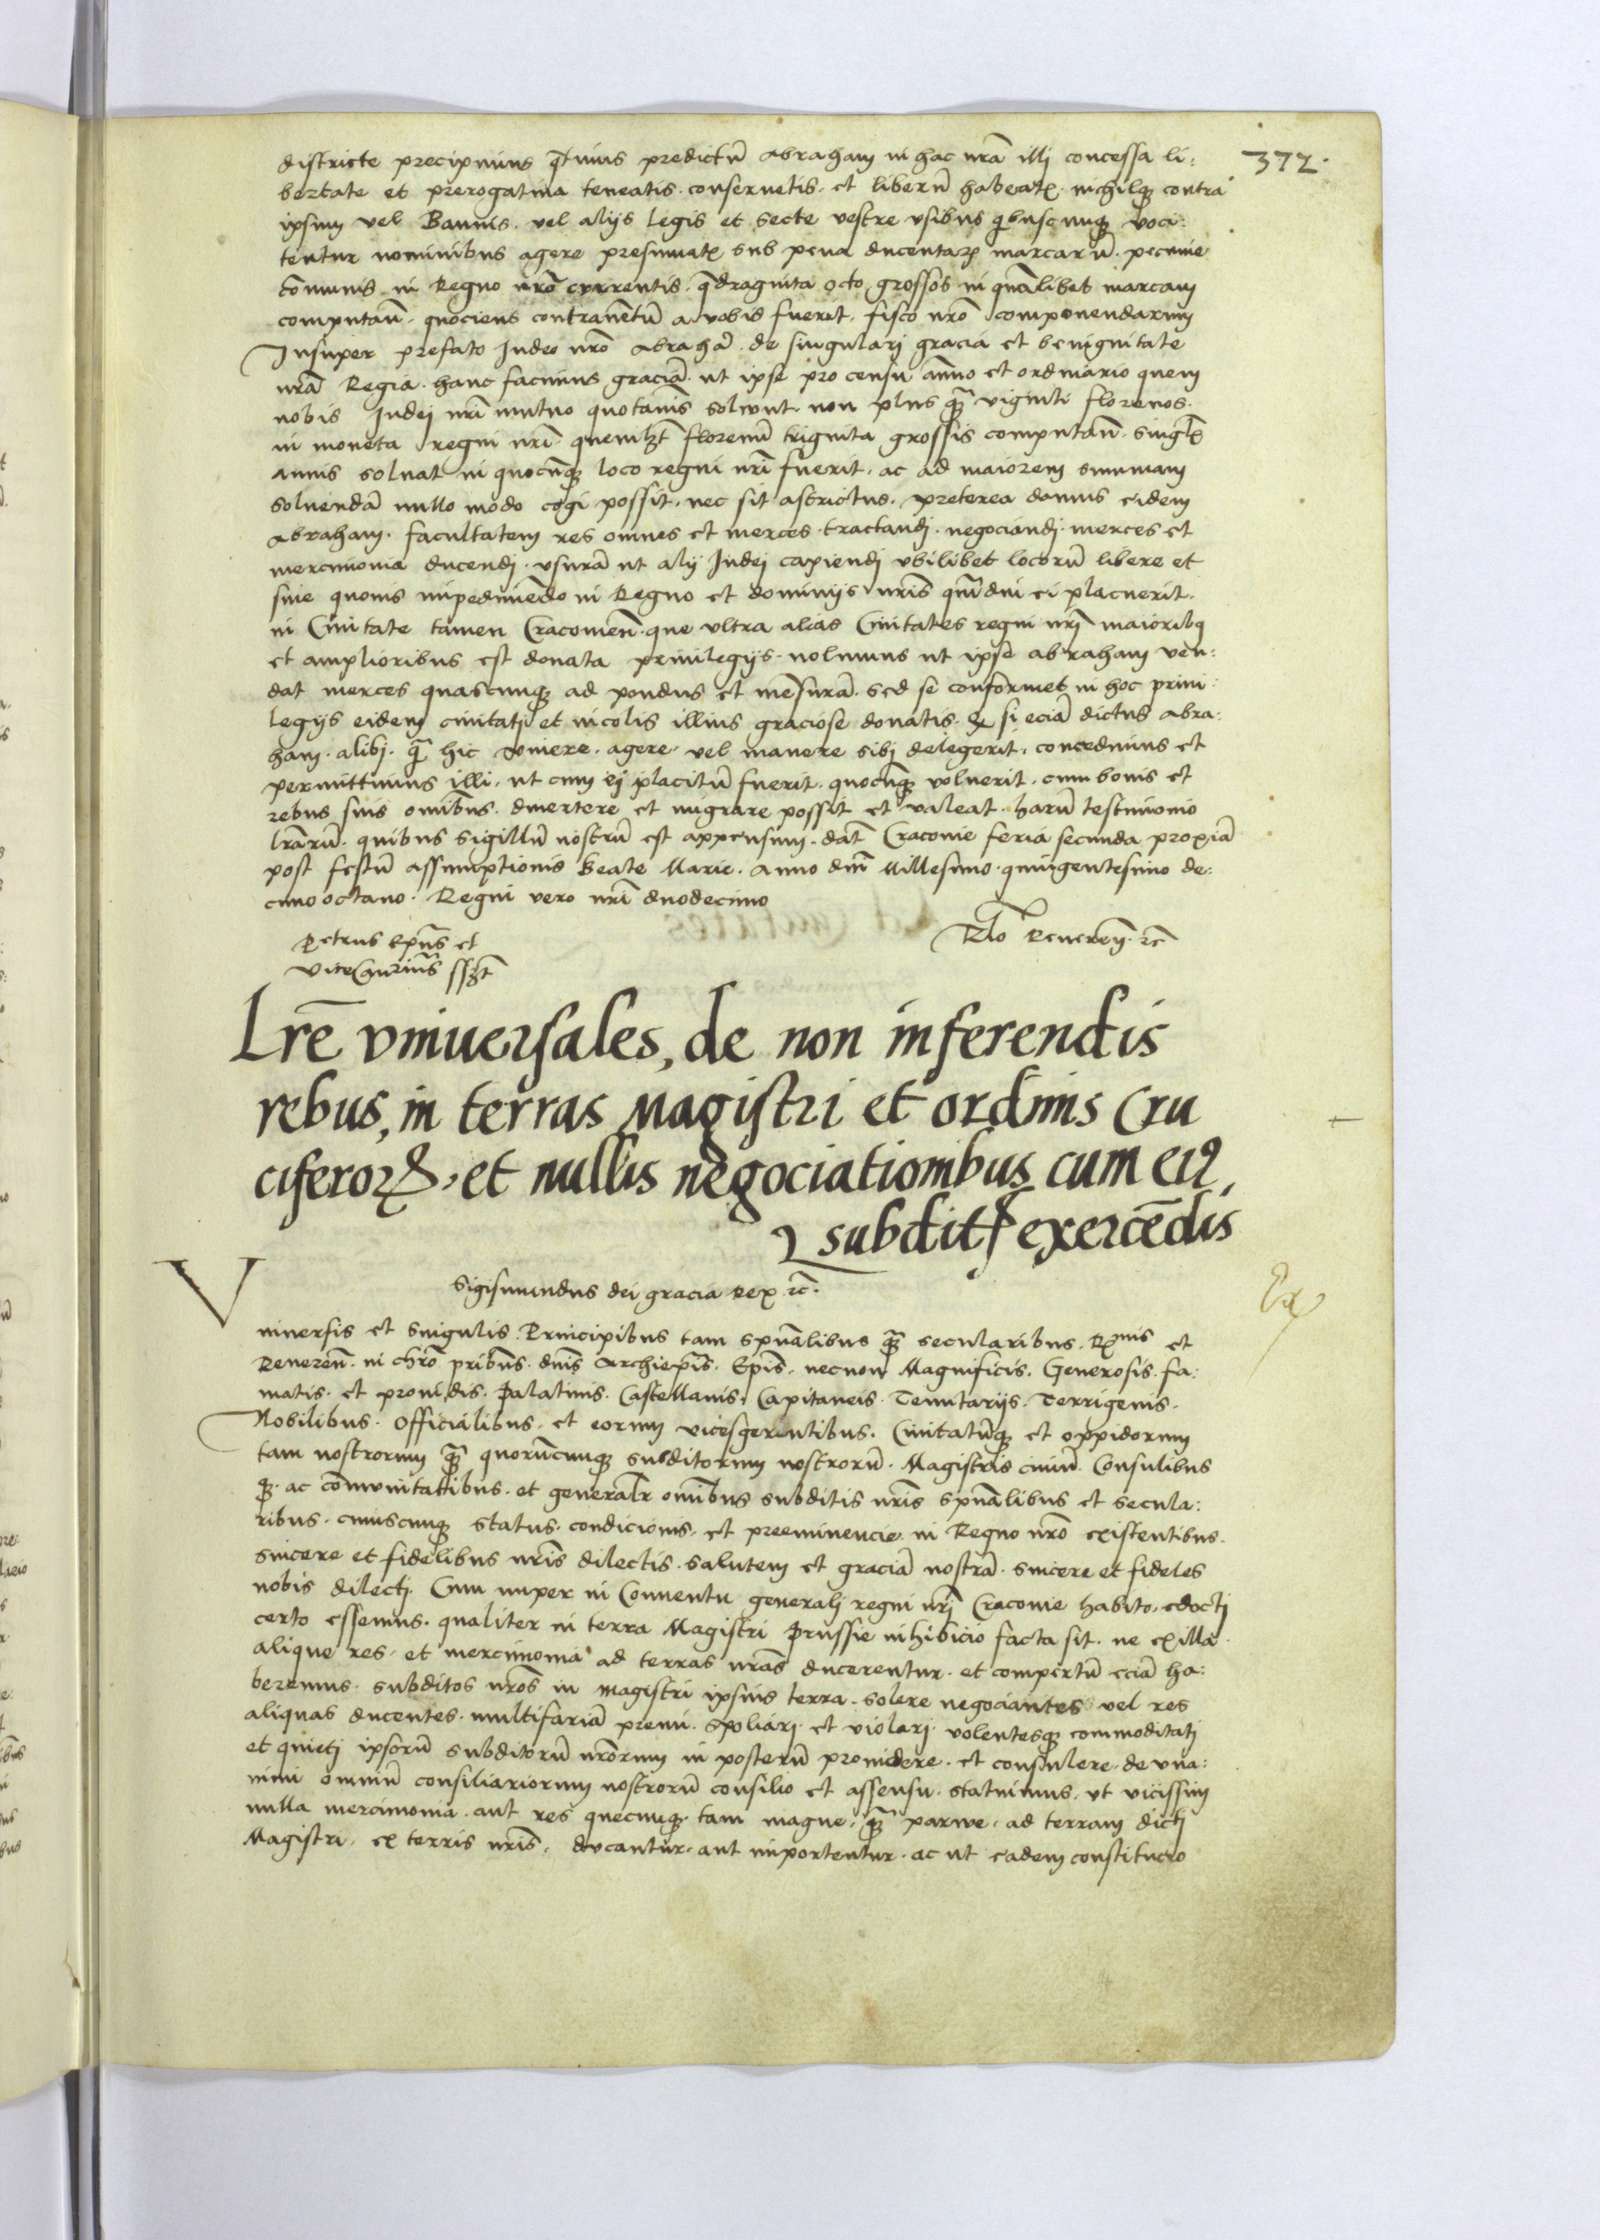 372.
districte precipimus q̃tinus predictũ Abraham in hac nrã illi concessa li:
bertate et prerogatiua teneatis. conseruetis. et liberũ habeatꝭ. nichilqꝫ contra
ipsum vel Bannis. vel alijs legis et secte vestre vsibus qibuscunqꝫ voci:
tentur nominibus agere presumatꝭ sub pena ducentarꝝ marcarũ. pecunie
cõmunis in Regno nrõ currentis. q̃draginta octo grossos in quãlibet marcam
computañ. quociens contrauentũ a vobis fuerit. fisco nrõ componendarum
Insuper prefato Iudeo nrõ Abrahã. de singularj gracia et benignitate
nrã Regia. hanc facimus graciã. ut ipse pro censu ãnuo et ordinario quem
nobis Iudej nrĩ mutuo quotãnis soluunt. non plus qꝫ̃ viginti florenos.
in moneta regni nrĩ. quemlꝫt florenũ triginta grossis computañ. singlꝭ
annis soluat in quocũqꝫ loco regni nrĩ fuerit. ac ad maiorem summam
soluendã nullo modo cogi possit. nec sit astrictus. preterea damus eidem
Abraham. facultatem res omnes et merces tractandj. negociandj merces et
mercimonia ducendj. vsurã ut alij Iudej capiendj vbilibet locorũ libere et
sine quouis impedimẽto in Regno et dominijs nrĩs qũdiu ei placuerit.
in Ciuitate tamen Cracouieñ. que vltra alias Ciuitates regni nrĩ maioribꝯ
et amplioribus est donata priuilegijs. nolumus ut ipse abraham ven:
dat merces quascunqꝫ ad pondus et mẽsurã. sed se conformet in hoc priui:
legijs eidem ciuitatj et incolis illius graciose donatis. Qꝫ si eciã dictus Abra:
ham. alibj. qꝫ̃ hic viuere. agere. vel manere sibj delegerit. concedimus et
permittimus illi. ut cum ej placitũ fuerit. quocũqꝫ voluerit. cum bonis et
rebus suis omĩbus. diuertere et migrare possit et valeat. harũ testimonio
lrãrũ. quibus sigillũ nostrũ est appensum. dat̃ Cracouie feria secunda proxiã
post festũ assumptionis beate Marie. Anno dnĩ Millesimo quingentesimo de:
cimo octauo. Regni vero nrĩ duodecimo
Petrus Ep̃us et
ViceCancrius̃ sszt
Rlo Reuereñ. ꝛc̃
Lrẽ vniuersales, de non inferendis
rebus, in terras Magistri et ordinis Cru
ciferorꝝ, et nullis negociationibus cum eiꝰ,
subditꝭ exercẽdis
Sigismundus dei gracia Rex ꝛc̃.
Vniuersis et singulis Principibus tam spũalibus qꝫ̃ secularibus. Rmis et
Reuereñ. in chrõ pribũs. dnĩs Archiepĩs. Epĩs. necnon Magnificis. Generosis. fa:
matis. et prouidis. Palatinis. Castellanis. Capitaneis. Tenutarijs. Terrigenis.
Nobilibus. Officialibus. et eorum vicesgerentibus. Ciuitatũqꝫ et oppidorum
tam nostrorum qꝫ̃ quorũcunqꝫ subditorum nostrorũ. Magistris ciuiũ. Consulibus
qꝫ. ac cõmunitatibus. et generalr̃ omĩbus subditis nrĩs spũalibus et secula:
ribus. cuiuscunqꝫ status. condicionis. et preeminencie. in Regno nrõ existentibus.
sincere et fidelibus nrĩs dilectis. salutem et graciã nostrã. sincere et fideles
nobis dilectj. Cum nuper in Conuentu generalj regni nrĩ Cracouie habito. edoctj
certo essemus. qualiter in terra Magistri Prussie inhibicio facta sit. ne ex illa
alique res. et mercimonia ad terras nrãs ducerentur. et compertũ eciã ha:
beremus. subditos nrõs in Magistri ipsius terra. solere negociantes vel res
aliquas ducentes. multifariã premi. spoliarj. et violarj. volentesqꝫ commoditatj
et quietj ipsorũ subditorũ nrõrum in posterũ prouidere. et consulere. de vna:
nimi omniũ consiliariorum nostrorũ consilio et assensu. statuimus. vt vicissim
nulla mercimonia. aut res quecunqꝫ. tam magne. qꝫ̃ parwe. ad terram dictj
Magistri. ex terris nrĩs. ducantur. aut importentur. ac ut eadem constitucio